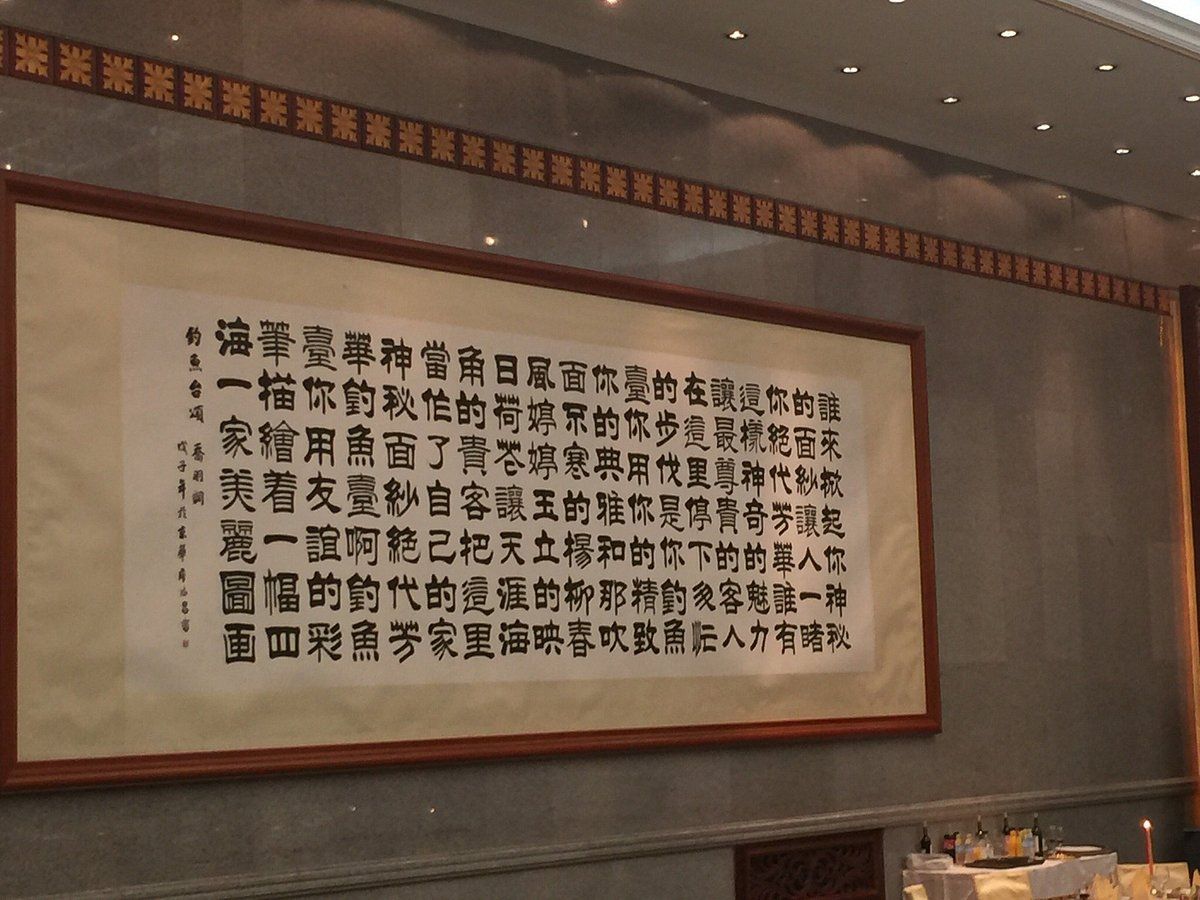 誰來掀起你神秘
的面紗讓人一睹
你絕代芳華誰有
這樣神奇的魅力
讓最尊貴的客人
在這里停下匆忙
的步伐是你釣魚
臺你用你的精致
你的典雅和那吹
面不寒的楊柳春
風婷婷玉立的映
日荷花讓天涯海
角的貴客把這里
當作了自己的家
神秘面紗絕代芳
華釣魚臺啊釣魚
臺你用友誼的彩
筆描繪着一幅四
海一家美麗圖画
釣魚台頌 喬羽詞
戊子年於京華